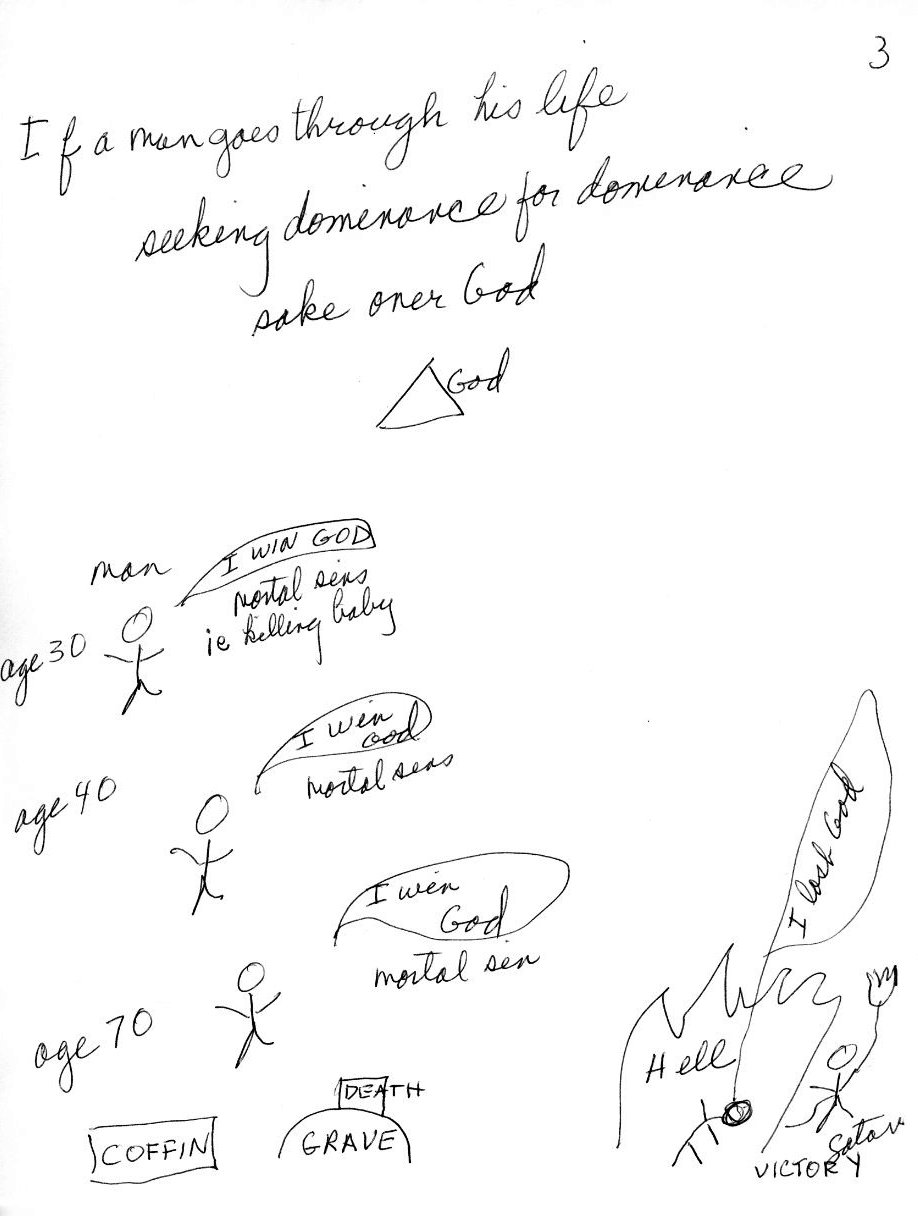 3
If a man goes through his life
seeking dominance for dominance
sake over God
God
man
I WIN GOD
mortal sins
ie killing baby
age 30
I win
God
mortal sins
age 40
I win
God
mortal sin
age 70
I lost God
Hell
DEATH
GRAVE
COFFIN
Satan
VICTORY